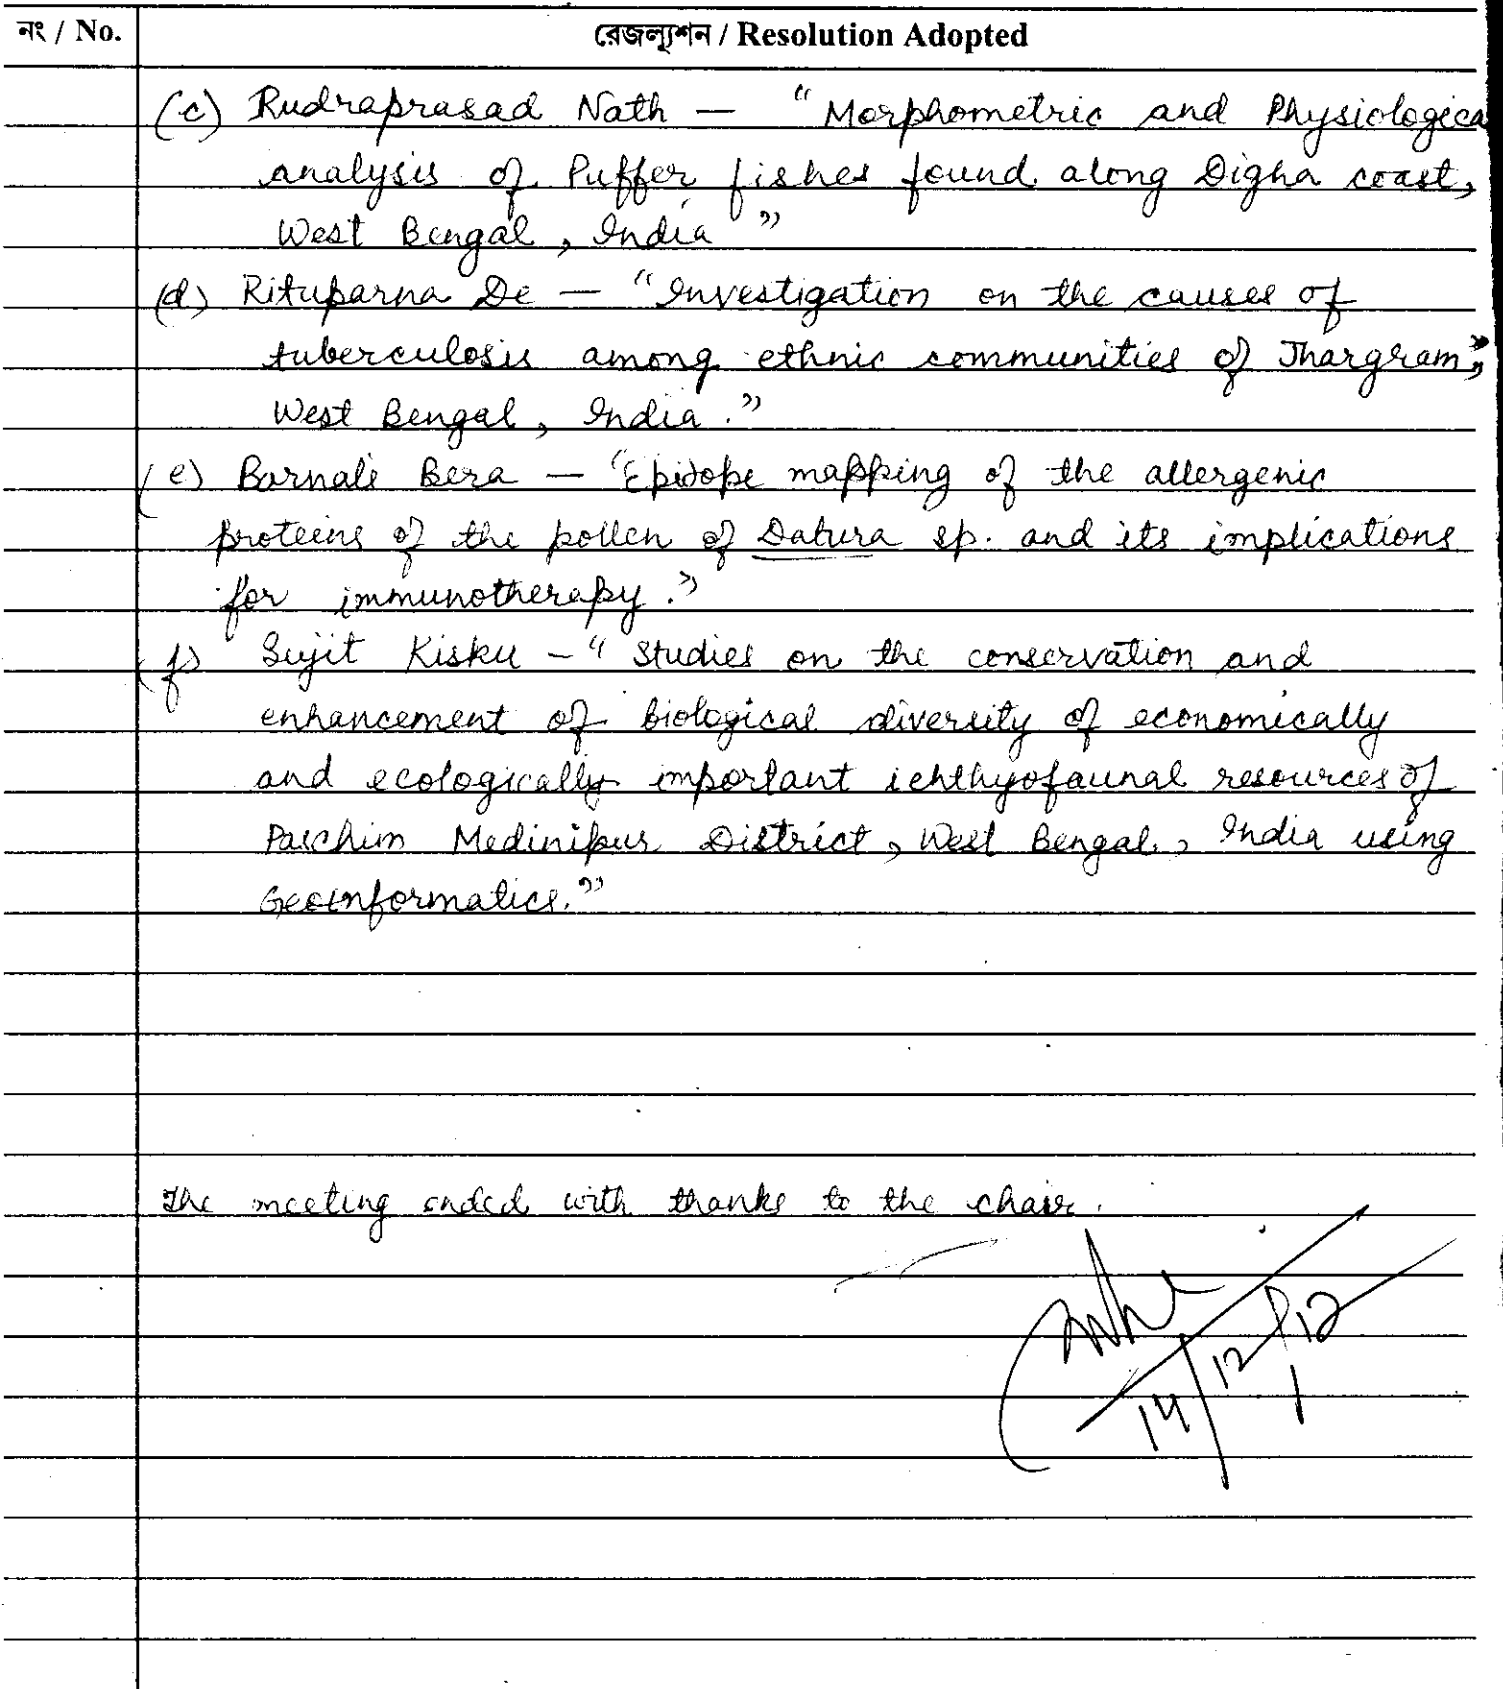 নং / No.
রেজল্যুশন / Resolution Adopted
(c) Rudraprasad Nath — "Morphometric and Physiologica
analysis of Puffer fishes found along Digha coast,
West Bengal, India"
(d) Rituparna De — "Investigation on the causes of
tuberculosis among ethnic communities of Jhargram,
West Bengal, India."
(e) Barnali Bera — "Epitope mapping of the allergenic
proteins of the pollen of Datura sp. and its implications
for immunotherapy."
(f) Sujit Kisku — "Studies on the conservation and
enhancement of biological diversity of economically
and ecologically important ichthyofaunal resources of
Paschim Medinipur District, West Bengal, India using
Geoinformatics."
The meeting ended with thanks to the chair.
14/12/12